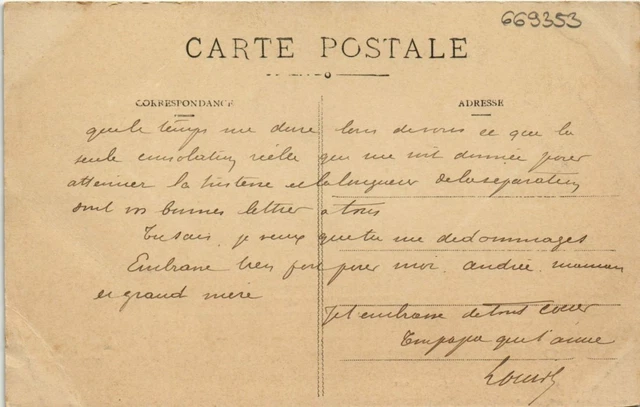 669353
CARTE POSTALE
CORRESPONDANCE
ADRESSE
que le temps me dure loin de vous et que la
seule consolation réelle qui me soit donnée pour
atténuer la tristesse et la longueur de la séparation
sont vos bonnes lettres à tous
Tu sais, je veux que tu me dédommages
Embrasse bien fort pour moi andrée maman
et grand mère
Je t'embrasse de tout coeur
Ton papa qui t'aime